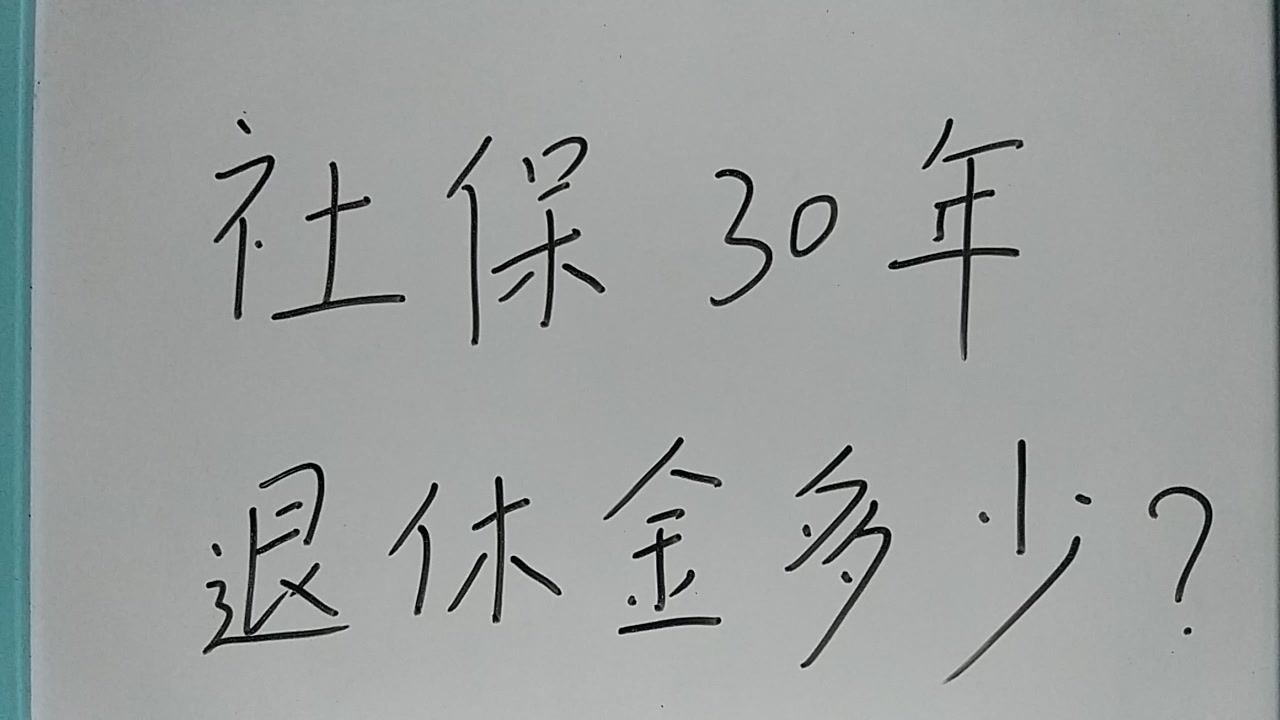 社保30年
退休金多少?